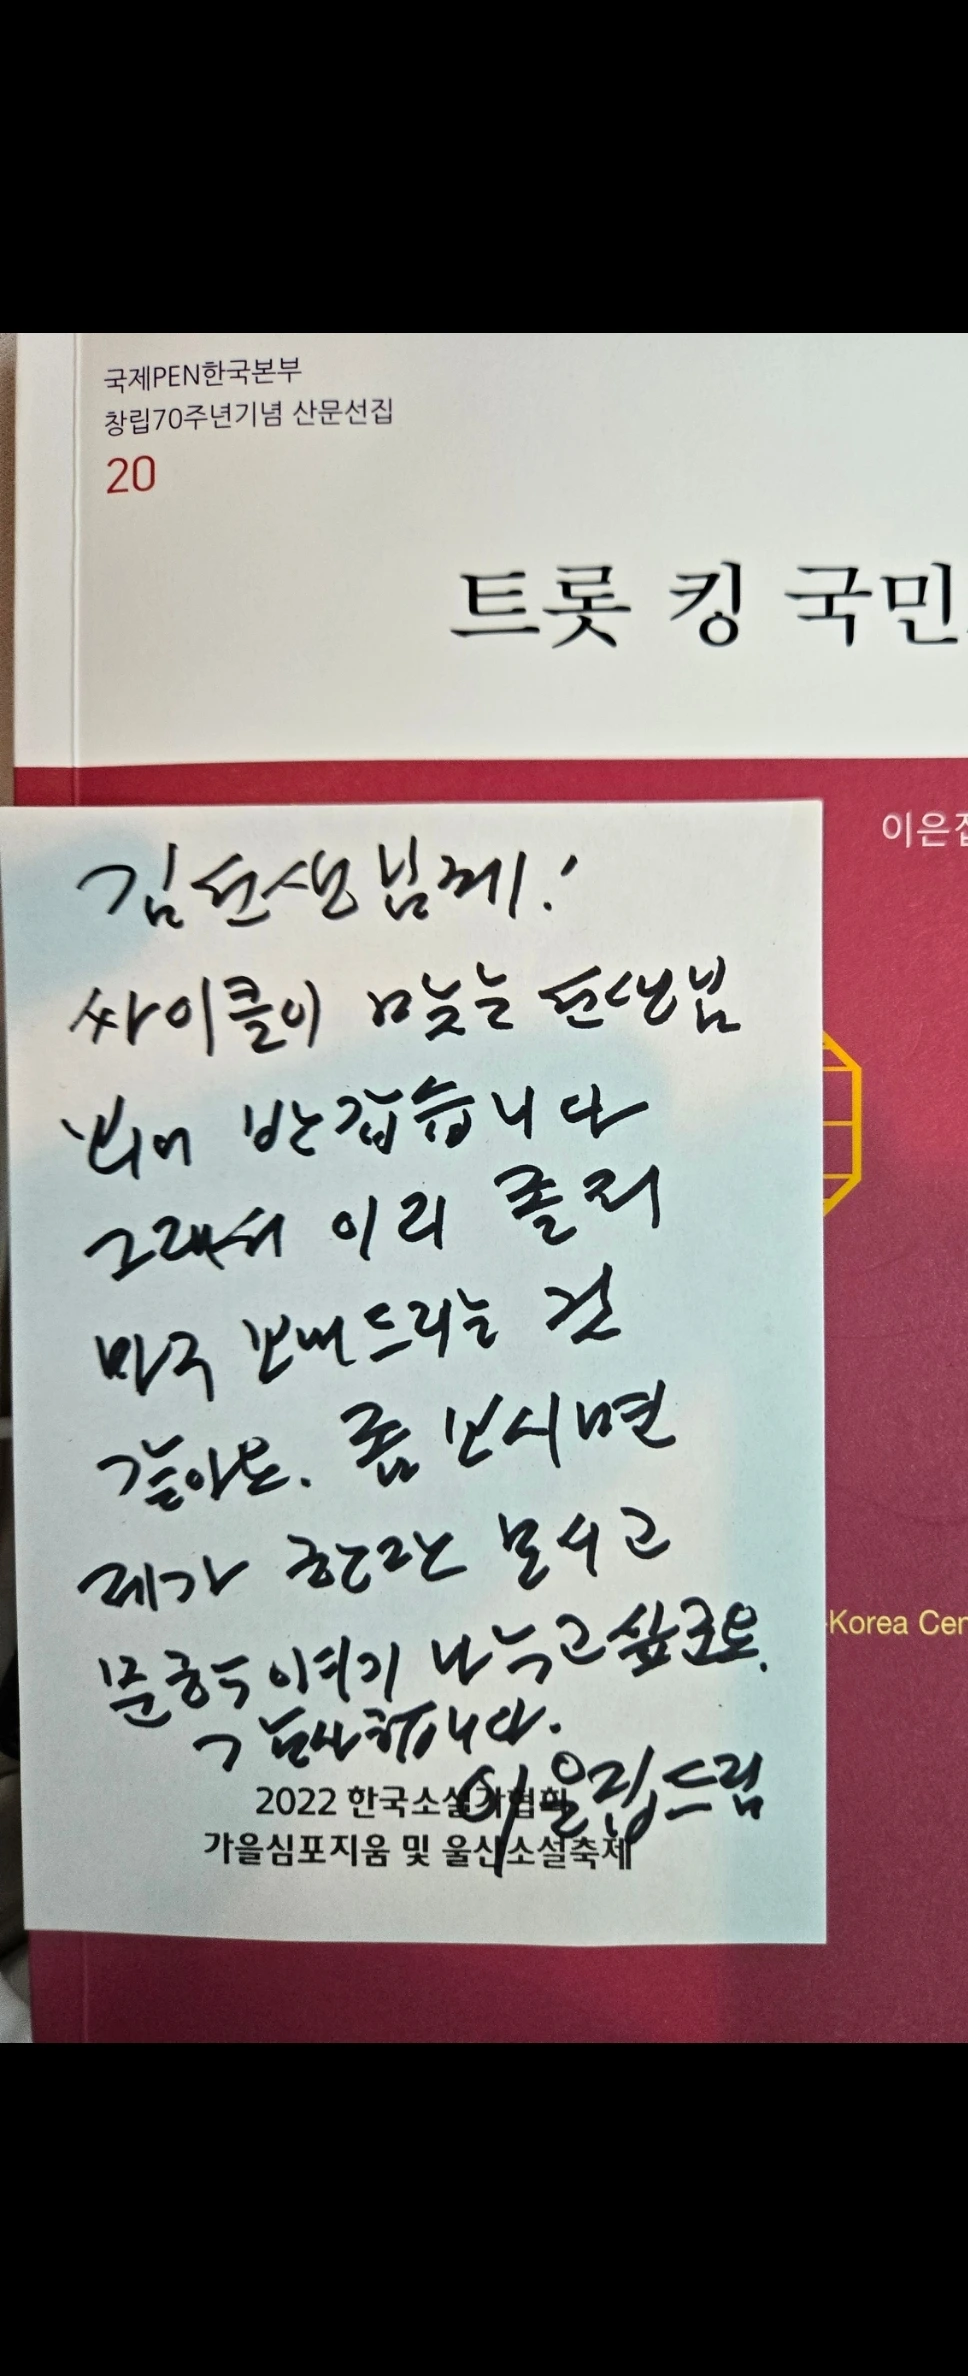 국제PEN한국본부
창립70주년기념 산문선집
20
트롯 킹 국민
이은집
김선생님께!
싸이클이 맞는 선생님
뵈어 반갑습니다
그래서 이리 졸저
마구 보내드리는 것
같아요. 좀 보시면
제가 한잔 모시고
문학 이야기 나누고 싶군요.
감사합니다.
이은집 드림
2022 한국소설가협회
가을심포지움 및 울산소설축제
Korea Cen